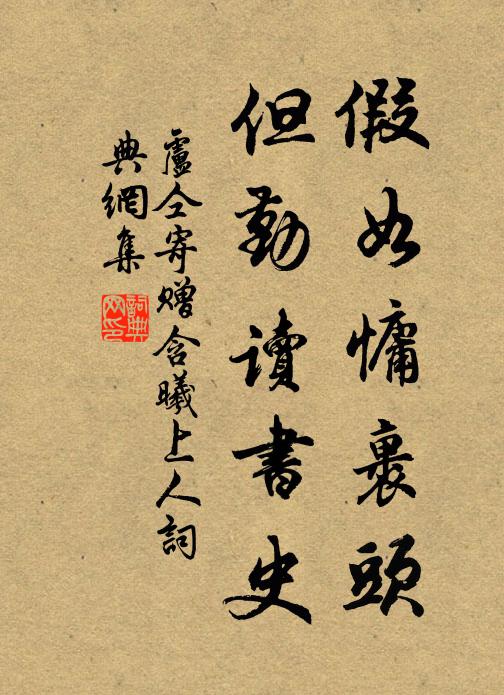 假如慵裹頭
但勤讀書史
盧仝寄贈含曦上人詞
典網集
詞典
网印